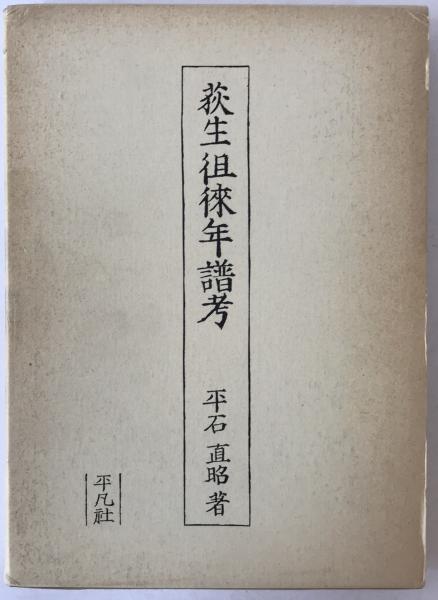 荻生徂徠年譜考
平石直昭著
平凡社